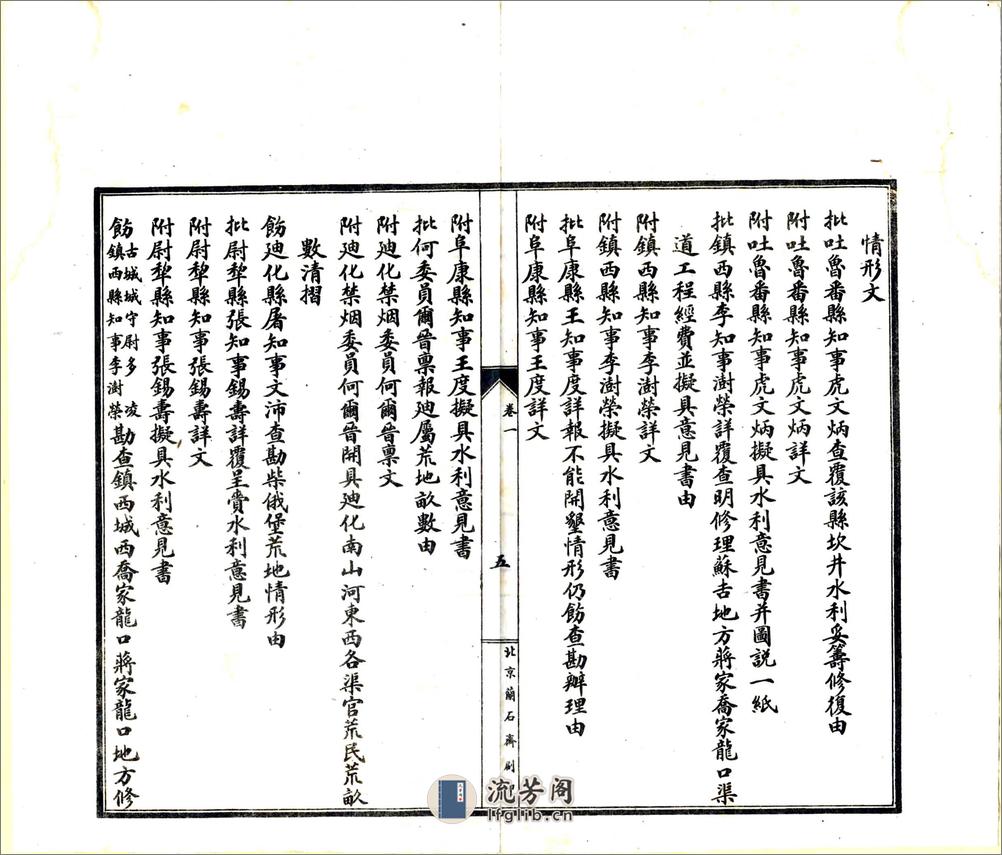 情形文
批吐魯番縣知事虎文炳查覆該縣坎井水利妥籌修復由
附吐魯番縣知事虎文炳詳文
附吐魯番縣知事虎文炳擬具水利意見書并圖説一紙
批鎮西縣李知事澍榮詳覆查明修理蘇吉地方蔣家喬家龍口渠
道工程經費並擬具意見書由
附鎮西縣知事李澍榮詳文
附鎮西縣知事李澍榮擬具水利意見書
批阜康縣王知事度詳報不能開墾情形仍飭查勘辦理由
附阜康縣知事王度詳文
卷一
五
北京蘭石齋刷
附阜康縣知事王度擬具水利意見書
批何委員爾晉禀報廸屬荒地畝數由
附廸化禁烟委員何爾晉禀文
附廸化禁烟委員何爾晉開具廸化南山河東西各渠官荒民荒畝
數清摺
飭廸化縣屠知事文沛查勘柴俄堡荒地情形由
批尉犂縣張知事錫壽詳覆呈賫水利意見書
附尉犂縣知事張錫壽詳文
附尉犂縣知事張錫壽擬具水利意見書
飭古城城守尉多凌鎮西縣知事李澍榮勘查鎮西城西喬家龍口蔣家龍口地方修
流芳阁
lfglib.cn